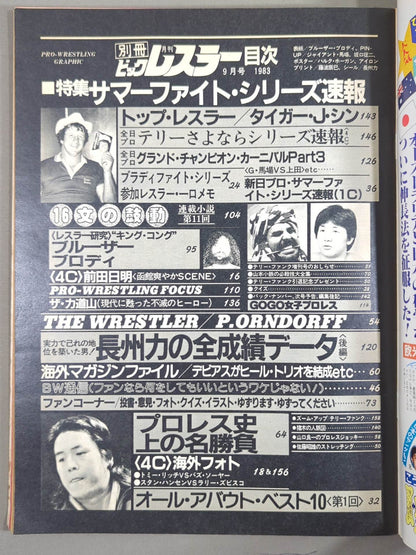 PRO-WRESTLING
GRAPHIC
別冊
月刊
ビッグレスラー目次
9月号 1983
表紙/ブルーザー・ブロディ、PIN-
UP/ジャイアント馬場、坂口征二、
ポスター/ハルク・ホーガン、アイロン
プリント/藤波辰巳、シール/長州力
■特集サマーファイト・シリーズ速報
トップ・レスラー/タイガー・J・シン 143
全日プロ テリーさよならシリーズ速報(4C) 146
全日プロ グランド・チャンピオン・カーニバルPart3 126
〈G・馬場VS上田〉etc……
ブラディファイト・シリーズ 24
参加レスラー一口メモ
新日プロ・サマーファ
イト・シリーズ速報(1C) 36
16文の鼓動 連載小説 第11回 104
〈レスラー研究〉“キング・コング”
ブルーザー
ブロディ 95
〈4C〉前田日明〈函館爽やかSCENE〉 16
PRO-WRESTLING FOCUS 110
ザ・力道山(現代に甦った不滅のヒーロー) 136
●テリー・ファンク増刊号のおしらせ
●山本小鉄の必殺技大全集 70
●テリー・ファンク引退記念プレゼント 50
●クイズ
●バック・ナンバー、次号予告、編集後記 142
GOGO女子プロレス 114
THE WRESTLER / P.ORNDORFF 54
実力で己れの地
位を築いた男!
長州力の全成績データ〈後編〉 120
海外マガジンファイル/デビアスがヒール・トリオを結成etc… 60
BW通信(ファンなら何をしてもいいというワケじゃない/) 46
ファンコーナー/投書・意見・フォト・クイズ・イラスト・ゆずります・ゆずってください 73
プロレス史
上の名勝負 64
〈4C〉海外フォト 18&156
●トミー・リッチVSバズ・ソーヤー
●スタン・ハンセンVSラリー・ズビスコ
●ズーム・アップ テリー・ファンク 158
●猪木の人脈図 140
●山口良一のプロレスジョッキー 58
●佐藤昭雄のストレッチング 50
オール・アバウト・ベスト10〈第1回〉 32